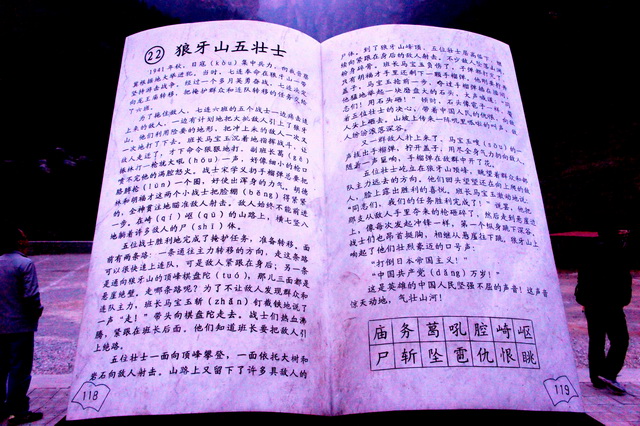 22 狼牙山五壮士
1941年秋，日寇（kòu）集中兵力，向我晋察
冀根据地大举进犯。当时，七连奉命在狼牙山一带
坚持游击战争。经过一个多月英勇奋战，七连决定
向龙王庙转移，把掩护群众和连队转移的任务交给
了六班。
为了拖住敌人，七连六班的五个战士一边痛击追
上来的敌人，一边有计划地把大批敌人引上了狼牙
山。他们利用险要的地形，把冲上来的敌人一次又
一次地打了下去。班长马宝玉沉着地指挥战斗，让
敌人走近了，才下命令狠狠地打。副班长葛（gě）
振林打一枪就大吼（hǒu）一声，好像细小的枪口
喷不完他的满腔怒火。战士宋学义扔手榴弹总要把
胳膊抡（lūn）一个圈，好使出浑身的力气。胡德
林和胡福才这两个小战士把脸绷（běng）得紧紧
的，全神贯注地瞄准敌人射击。敌人始终不能前进
一步。在崎（qí）岖（qū）的山路上，横七竖八
地躺着许多敌人的尸（shī）体。
五位战士胜利地完成了掩护任务，准备转移。面
前有两条路：一条通往主力转移的方向，走这条路
可以很快追上连队，可是敌人紧跟在身后；另一条
是通向狼牙山的顶峰棋盘陀（tuó），那儿三面都是
悬崖绝壁。走哪条路呢？为了不让敌人发现群众和
连队主力，班长马宝玉斩（zhǎn）钉截铁地说了
一声“走！”带头向棋盘陀走去。战士们热血沸
腾，紧跟在班长后面。他们知道班长要把敌人引
上绝路。
五位壮士一面向顶峰攀登，一面依托大树和
岩石向敌人射击。山路上又留下了许多具敌人的
118
尸体。到了狼牙山峰顶，五位壮士居高临下，继
续向紧跟在身后的敌人射击。不少敌人坠落山涧，
粉身碎骨。班长马宝玉负伤了，子弹都打完了，
只有胡福才手里还剩下一颗手榴弹，他刚要拧开
盖子，马宝玉抢前一步，夺过手榴弹插在腰间，
他猛地举起一块磨盘大的石头，大声喊道：“同
志们！用石头砸！”顿时，石头像雹子一样，带
着五位壮士的决心，带着中国人民的仇恨，向敌
人头上砸去。山坡上传来一阵叽里呱啦的叫声，敌
人纷纷滚落深谷。
又一群敌人扑上来了。马宝玉嗖（sōu）的一
声拔出手榴弹，拧开盖子，用尽全身气力向敌人扔去。
随着一声巨响，手榴弹在敌群中开了花。
五位壮士屹立在狼牙山顶峰，眺望着群众和部
队主力远去的方向。他们回头望望还在向上爬的敌
人，脸上露出胜利的喜悦。班长马宝玉激动地说：
“同志们，我们的任务胜利完成了！”说罢，他把
那支从敌人手里夺来的枪砸碎了，然后走到悬崖边
上，像每次发起冲锋一样，第一个纵身跳下深谷。
战士们也昂首挺胸，相继从悬崖往下跳。狼牙山上
响起了他们壮烈豪迈的口号声：
“打倒日本帝国主义！”
“中国共产党（dǎng）万岁！”
这是英雄的中国人民坚强不屈的声音！这声音
惊天动地，气壮山河！
庙务葛吼腔崎岖
尸斩坠雹仇恨眺
119